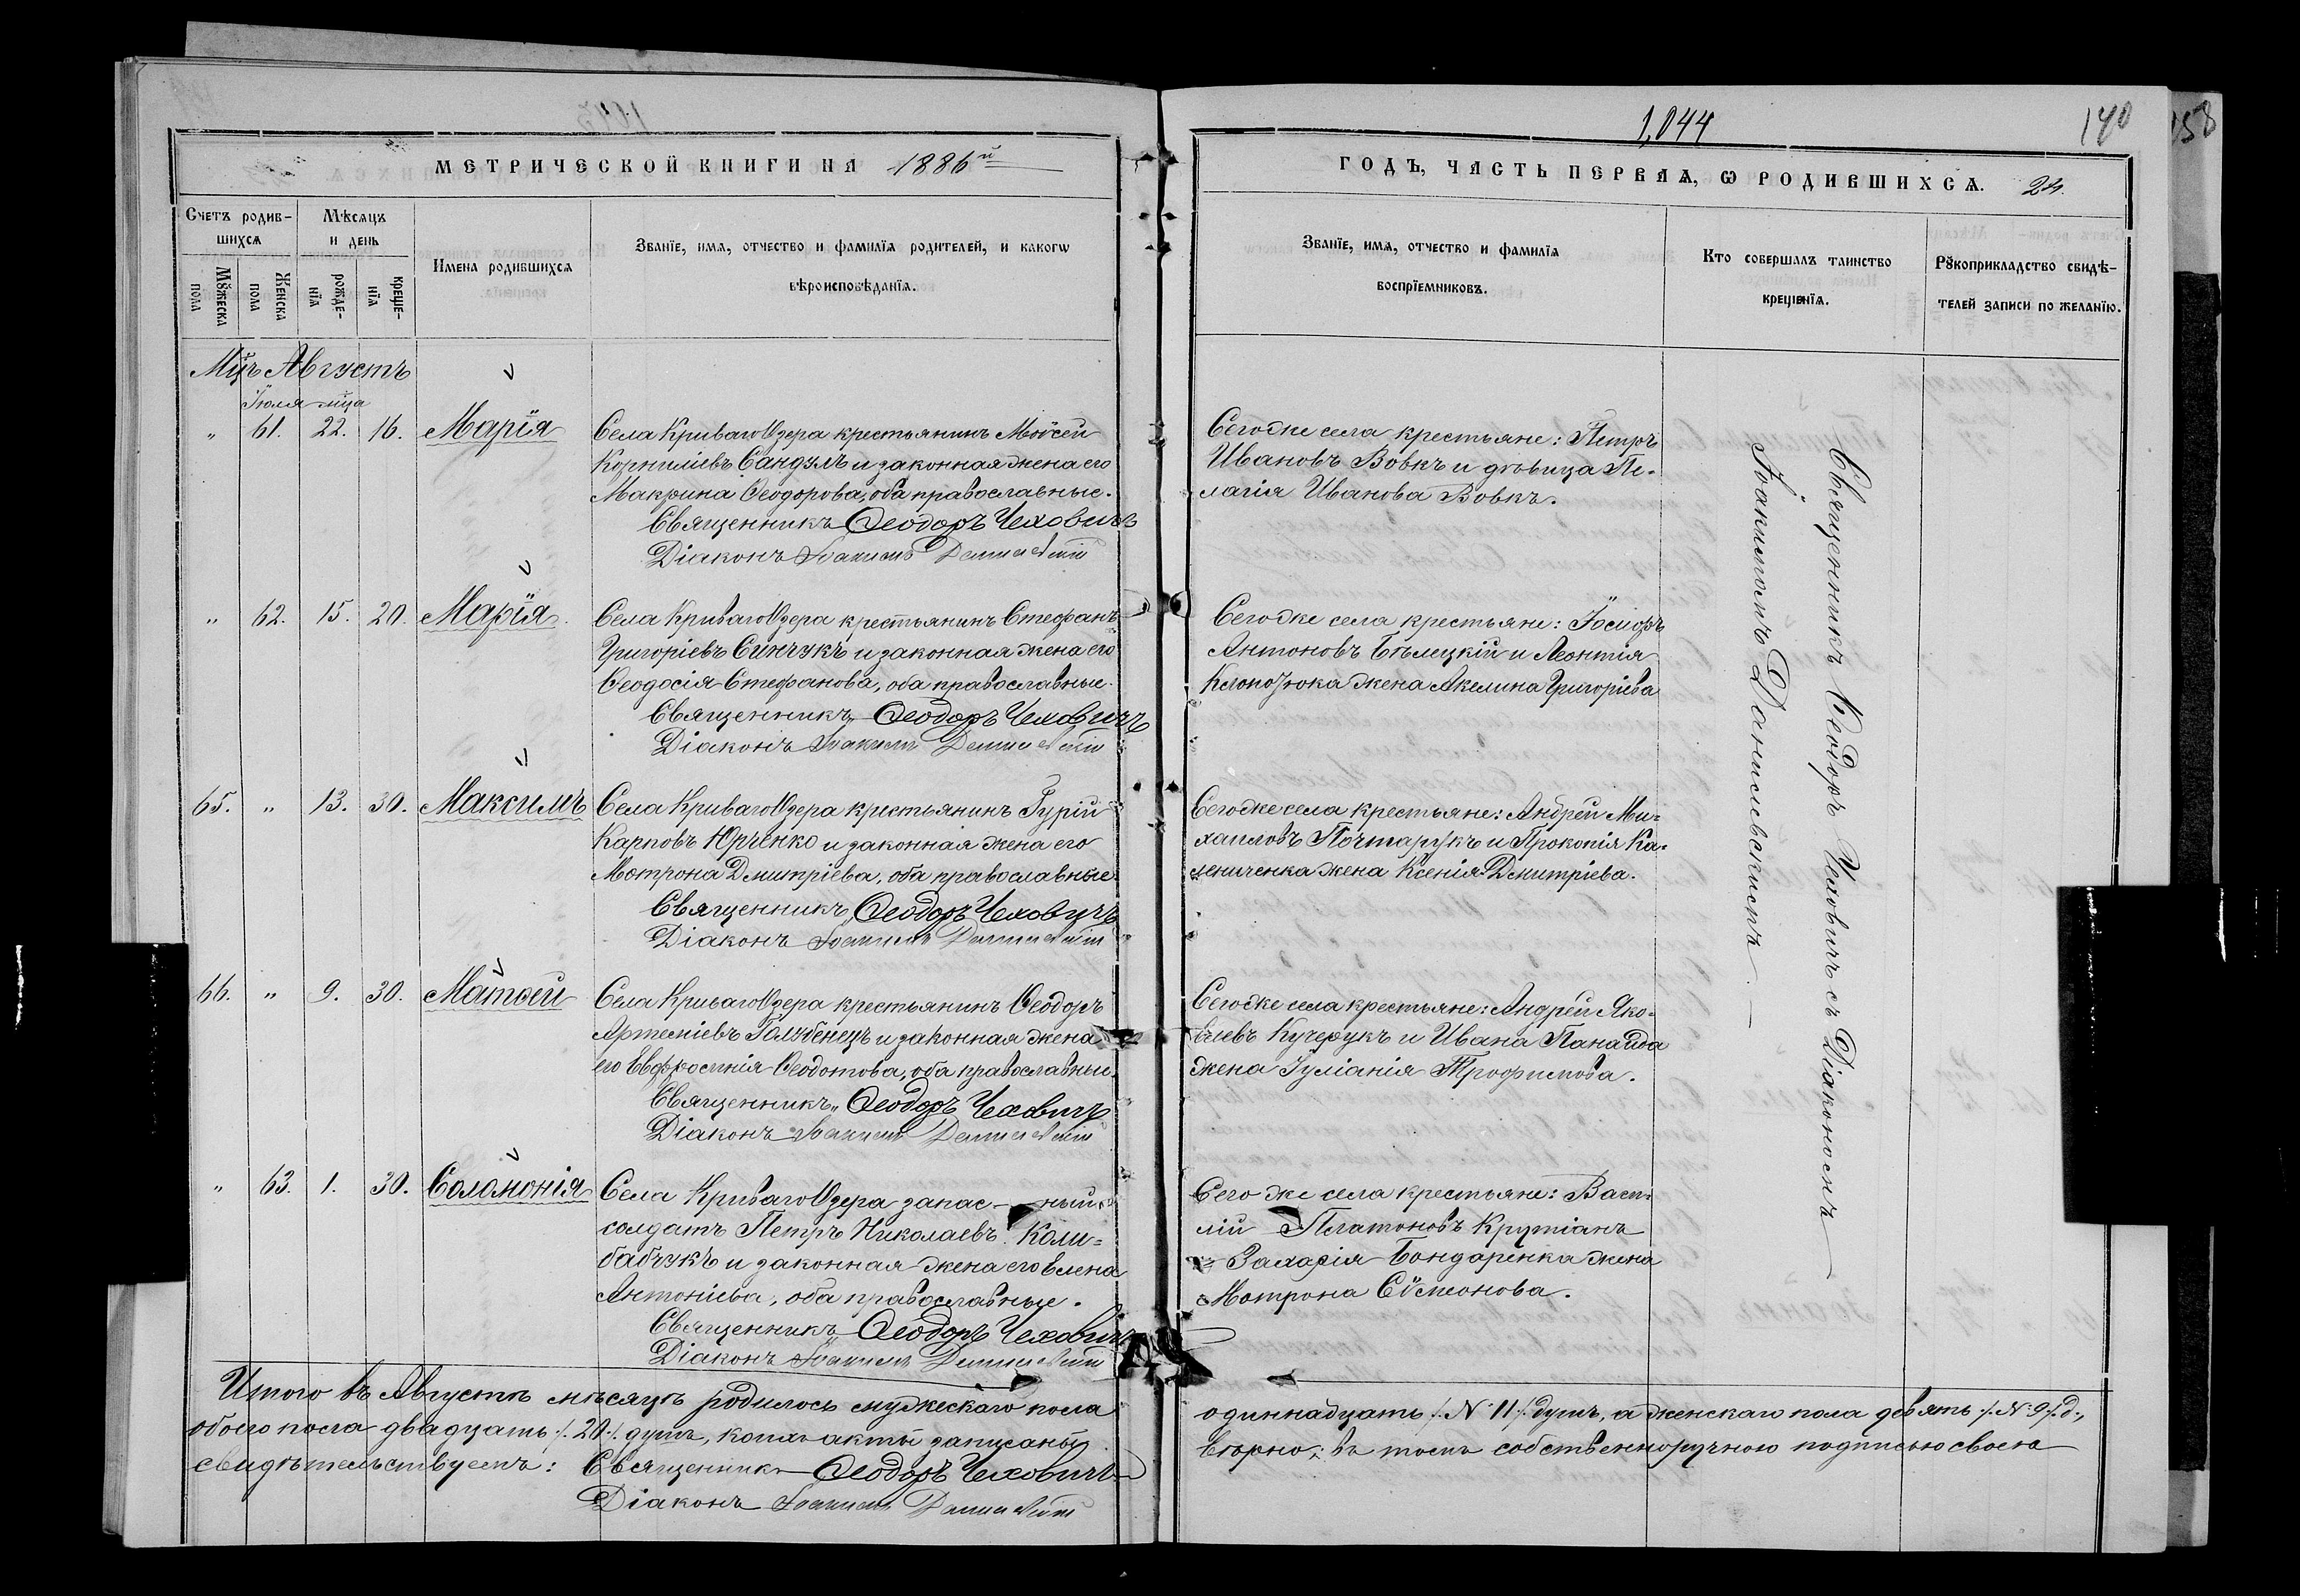 1,044
140
158
МЕТРИЧЕСКОЙ КНИГИ НА 1886й
ГОДЪ, ЧАСТЬ ПЕРВАѦ, Ѡ РОДИВШИХСѦ. 24.
Счетъ родив-
шихсѧ
Мѣсѧцъ
и день
Мꙋжеска
пола
Женска
пола
рожде-
нїѧ
креще-
нїѧ
Имена родившихсѧ
Званїе, имѧ, отчество и фамилїѧ родителей, и какогѡ
вѣроисповѣданїѧ.
Званїе, имѧ, отчество и фамилїѧ
воспрїемниковъ.
Кто совершалъ таинство
крещенїѧ.
Рꙋкоприкладство свидѣ-
телей записи по желанїю.
Мцъ Августъ
Іюля мца
„ 61. 22. 16. Марія
Села Криваго Озера крестьянинъ Мойсей
Корниліевъ Сандулъ и законная жена его
Макрина Ѳеодорова, оба православные.
Священникъ Ѳеодоръ Чеховичъ
Діаконъ Іоакимъ
Сегоже села крестьяне: Петръ
Ивановъ Вовкъ и дѣвица Пе-
лагія Иванова Вовкъ.
„ 62. 15. 20. Марія.
Села Криваго Озера крестьянинъ Стефанъ
Григоріевъ Синчукъ и законная жена его
Ѳеодосія Стефанова, оба православные.
Священникъ Ѳеодоръ Чеховичъ
Діаконъ Іоакимъ
Сегоже села крестьяне: Іосифъ
Антоновъ Бѣлецкій и Леонтія
жена Акелина Григоріева
65. „ 13. 30. Максимъ
Села Криваго Озера крестьянинъ Гурій
Карповъ Юрченко и законная жена его
Мотрона Дмитріева, оба православные
Священникъ Ѳеодоръ Чеховичъ
Діаконъ Іоакимъ
Сегоже села крестьяне: Андрей Ми-
хаиловъ Почтарукъ и Прокопія Ка-
лениченка жена Ксенія Дмитріева.
66. „ 9. 30. Матѳей
Села Криваго Озера крестьянинъ Ѳеодоръ
Артеміевъ Голубенецъ и законная жена
его Евфросинія Ѳеодотова, оба православные.
Священникъ Ѳеодоръ Чеховичъ
Діаконъ Іоакимъ
Сегоже села крестьяне: Андрей Яко-
влевъ Кучерукъ и Ивана Панаида
жена Іуліанія Трофимова.
„ 63. 1. 30. Соломонія
Села Криваго Озера запас-ный
солдатъ Петръ Николаевъ Коли-
бабчукъ и законная жена его Елена
Антоніева, оба православные.
Священникъ Ѳеодоръ Чеховичъ
Діаконъ Іоакимъ
Сего же села крестьяне: Васи-
лій Платоновъ Крутіанъ
и Захарія Бондаренка жена
Мотрона Сѵмеонова.
Священникъ Ѳеодоръ Чеховичъ съ Діакономъ
Іоакимомъ Данилевскимъ
Итого въ Августѣ мѣсяцѣ родилось мужескаго пола
одиннадцать /:№ 11:/ душъ, а женскаго пола девять /:№ 9:/ д.,
обоего пола двадцать /:20:/ душъ, коихъ акты записаны
вѣрно; въ томъ собственноручною подписью своею
свидѣтельствуемъ: Священникъ Ѳеодоръ Чеховичъ
Діаконъ Іоакимъ